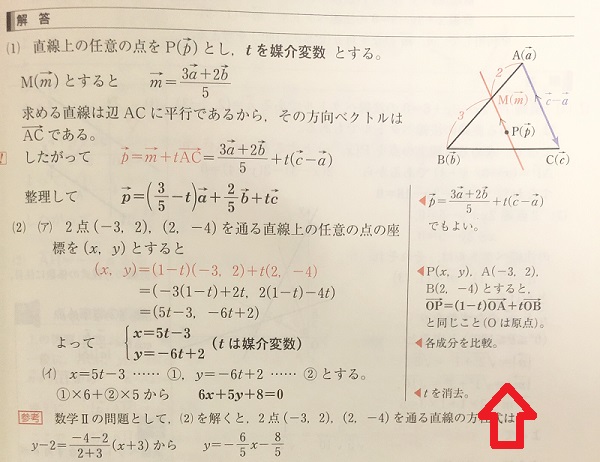 解答
(1) 直線上の任意の点をP(p⃗)とし，tを媒介変数 とする。
M(m⃗)とすると m⃗=(3a⃗+2b⃗)/5
求める直線は辺ACに平行であるから，その方向ベクトルは
AC⃗である。
したがって p⃗=m⃗+tAC⃗=(3a⃗+2b⃗)/5+t(c⃗-a⃗)
整理して p⃗=(3/5-t)a⃗+2/5b⃗+tc⃗
(2) (ア) 2点(-3, 2), (2, -4)を通る直線上の任意の点の座
標を(x, y)とすると
(x, y)=(1-t)(-3, 2)+t(2, -4)
=(-3(1-t)+2t, 2(1-t)-4t)
=(5t-3, -6t+2)
よって {x=5t-3
y=-6t+2 (tは媒介変数)
(イ) x=5t-3 …… ①, y=-6t+2 …… ② とする。
①×6+②×5から 6x+5y+8=0
参考 数学Ⅱの問題として，(2)を解くと，2点(-3, 2), (2, -4)を通る直線の方程式は
y-2=(-4-2)/(2+3)(x+3)から y=-6/5x-8/5
A(a⃗)
2
M(m⃗)
c⃗-a⃗
3
P(p⃗)
B(b⃗)
C(c⃗)
◀p⃗=(3a⃗+2b⃗)/5+t(c⃗-a⃗)
でもよい。
◀P(x, y), A(-3, 2),
B(2, -4)とすると，
OP⃗=(1-t)OA⃗+tOB⃗
と同じこと(Oは原点)。
◀各成分を比較。
◀tを消去。